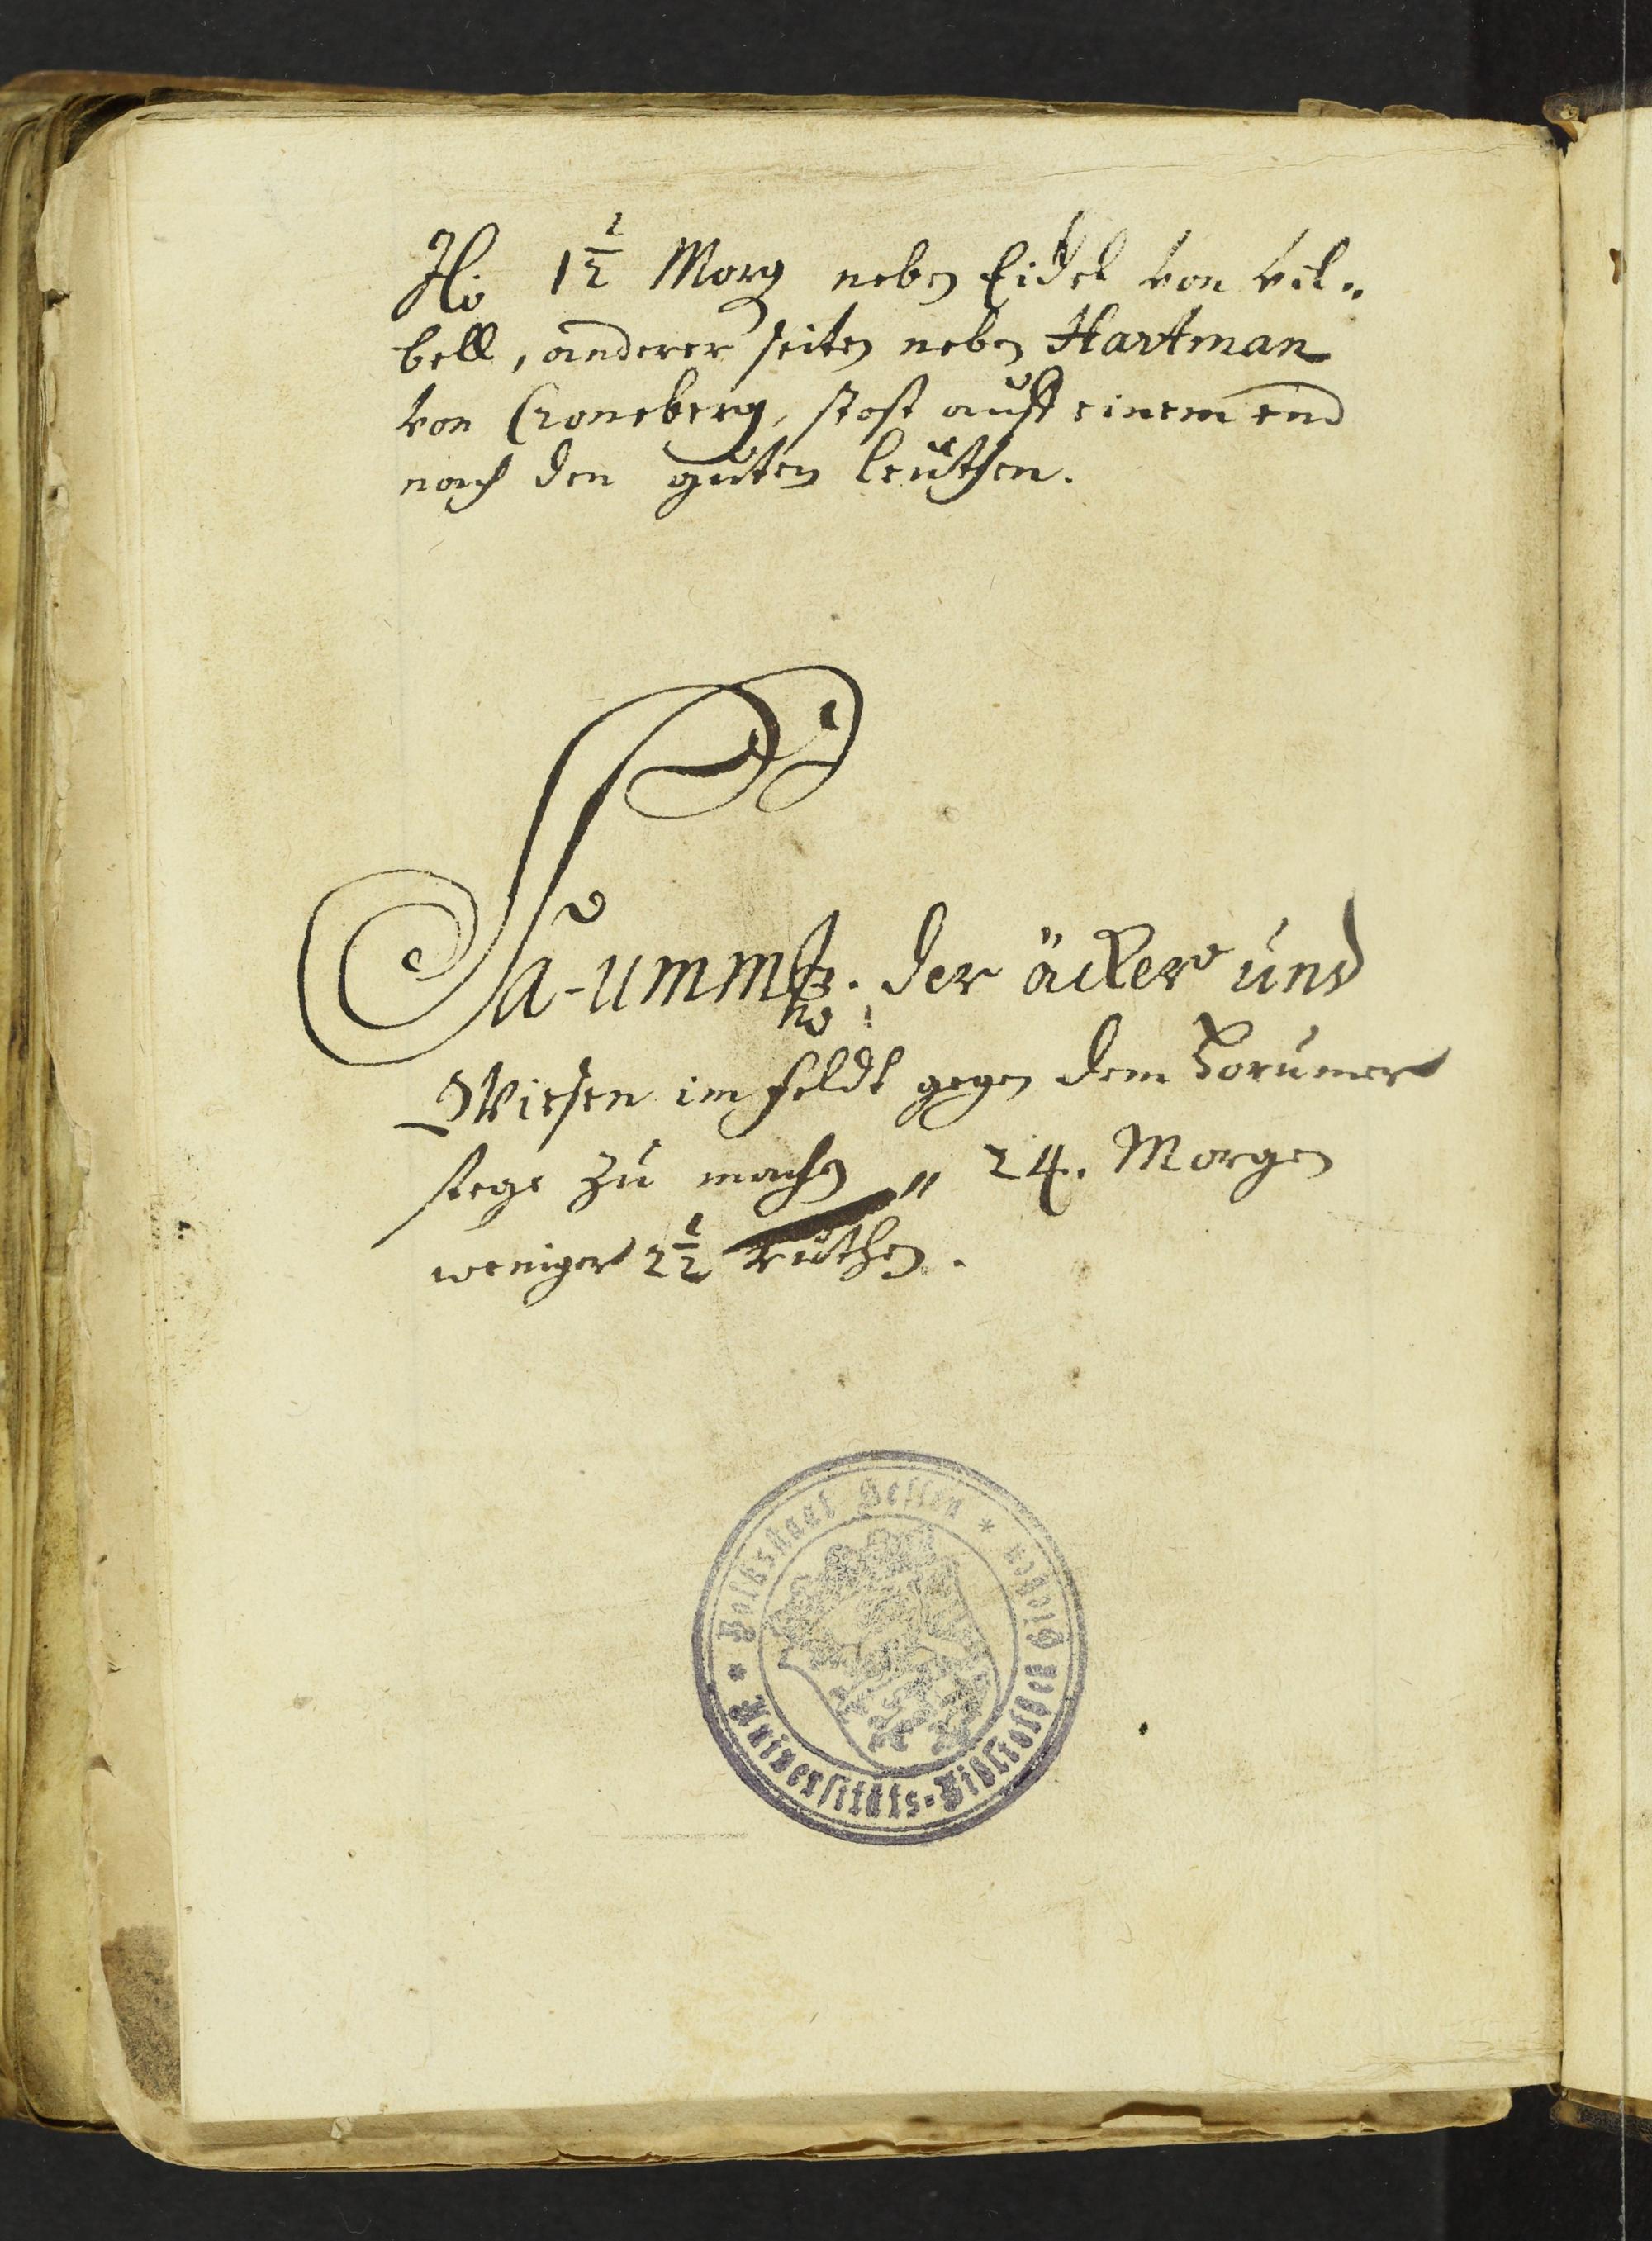 It. 1½ Morg neben Eidel von vil„
bell, anderer seiten neben Hartman
von Croneberg, stost auff einem end
nach den guten leuthen.
Sa-umma. der äcker und
Wiesen im feldt gegen dem
stege zu machen „ 24. Morgen
weniger 2½ ruthen.
* Volksstaat Hessen * Universitäts-Bibliothek Gießen